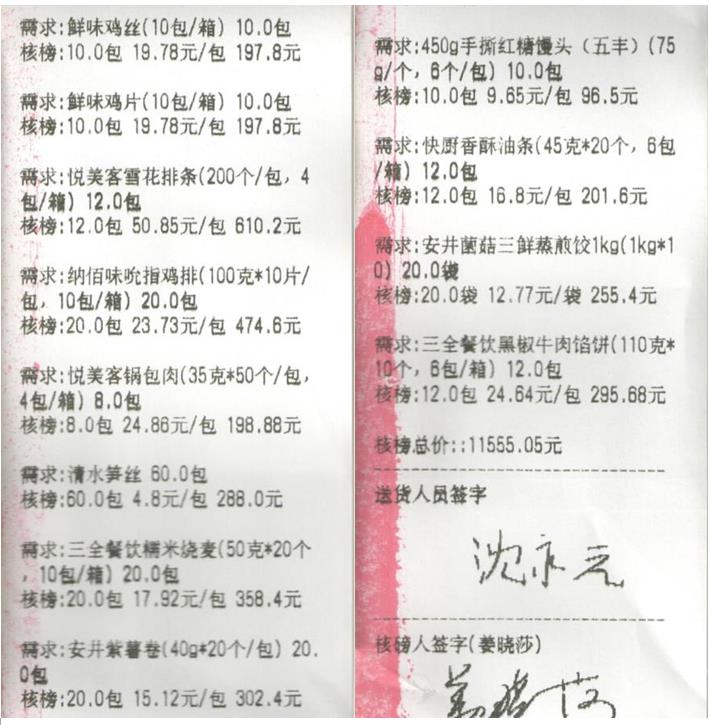 需求:鲜味鸡丝(10包/箱) 10.0包
核榜:10.0包 19.78元/包 197.8元
需求:鲜味鸡片(10包/箱) 10.0包
核榜:10.0包 19.78元/包 197.8元
需求:悦美客雪花排条(200个/包, 4
包/箱) 12.0包
核榜:12.0包 50.85元/包 610.2元
需求:纳佰味吮指鸡排(100克*10片/
包, 10包/箱) 20.0包
核榜:20.0包 23.73元/包 474.6元
需求:悦美客锅包肉(35克*50个/包,
4包/箱) 8.0包
核榜:8.0包 24.86元/包 198.88元
需求:清水笋丝 60.0包
核榜:60.0包 4.8元/包 288.0元
需求:三全餐饮糯米烧麦(50克*20个
, 10包/箱) 20.0包
核榜:20.0包 17.92元/包 358.4元
需求:安井紫薯卷(40g*20个/包) 20.
0包
核榜:20.0包 15.12元/包 302.4元
需求:450g手撕红糖馒头（五丰）(75
g/个, 6个/包) 10.0包
核榜:10.0包 9.65元/包 96.5元
需求:快厨香酥油条(45克*20个, 6包
/箱) 12.0包
核榜:12.0包 16.8元/包 201.6元
需求:安井菌菇三鲜蒸煎饺1kg(1kg*1
0) 20.0袋
核榜:20.0袋 12.77元/袋 255.4元
需求:三全餐饮黑椒牛肉馅饼(110克*
10个, 6包/箱) 12.0包
核榜:12.0包 24.64元/包 295.68元
核榜总价::11555.05元
送货人员签字
沈永元
核磅人签字(姜晓莎)
姜晓莎